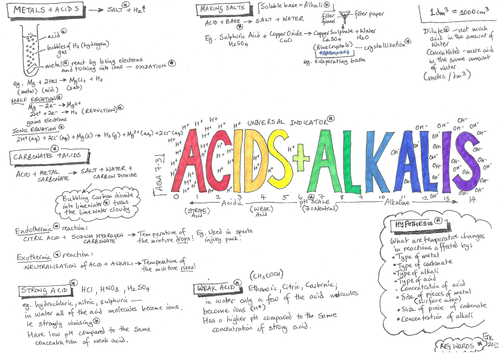 METALS + ACIDS → SALT + H₂↑
acid
bubbles of H₂ (hydrogen)
gas
metal react by losing electrons
and turning into ions - OXIDATION
eg. Mg + 2HCl → MgCl₂ + H₂
(metal) (acid) (salt)
HALF EQUATION
Mg - 2e⁻ → Mg²⁺
2H⁺ + 2e⁻ → H₂ (REDUCTION)
gains electrons
IONIC EQUATION
CARBONATES + ACIDS
ACID + METAL CARBONATE → SALT + WATER + CARBON DIOXIDE
Bubbling Carbon dioxide
into limewater turns
the limewater cloudy
Endothermic reaction:
CITRIC ACID + SODIUM HYDROGEN CARBONATE → Temperature of the mixture drops!
Eg. Used in sports
injury pack.
Exothermic reaction:
NEUTRALISATION OF ACID + ALKALI → Temperature of the mixture rises!
STRONG ACID HCl, HNO₃, H₂SO₄
eg. hydrochloric, nitric, sulphuric
in water all of the acid molecules become ions,
ie strongly ionising
Have low pH compared to the same
concentration of weak acid.
MAKING SALTS
Soluble base = Alkali
ACID + BASE → SALT + WATER
Eg. Sulphuric Acid + Copper Oxide → Copper Sulphate + Water
H₂SO₄ CuO CuSO₄ H₂O
filter funnel
filter paper
(Blue crystals) crystallisation
eg. evaporating basin
1dm³ = 1000cm³
Dilute - not much
acid in the amount of
water
Concentrated - more acid
in the same amount
of water
(moles/dm³)
UNIVERSAL INDICATOR
ACIDS + ALKALIS
0 1 2 3 4 5 6 7 8 9 10 11 12 13 14
(STRONG Acid) Acidic (WEAK) Acid pH SCALE (7=Neutral) Alkaline
WEAK ACID (CH₃COOH)
Ethanoic, Citric, Carbonic;
in water only a few of the acid molecules
become ions (H⁺)
Has a higher pH compared to the same
concentration of strong acid.
HYPOTHESIS
What are temperature changes
in reactions affected by;
• Type of metal
• Type of carbonate
• Type of alkali
• Type of acid
• Concentration of acid
• Size of pieces of metal
(surface area)
• Size of piece of carbonate
• Concentration of alkali
KEYWORDS